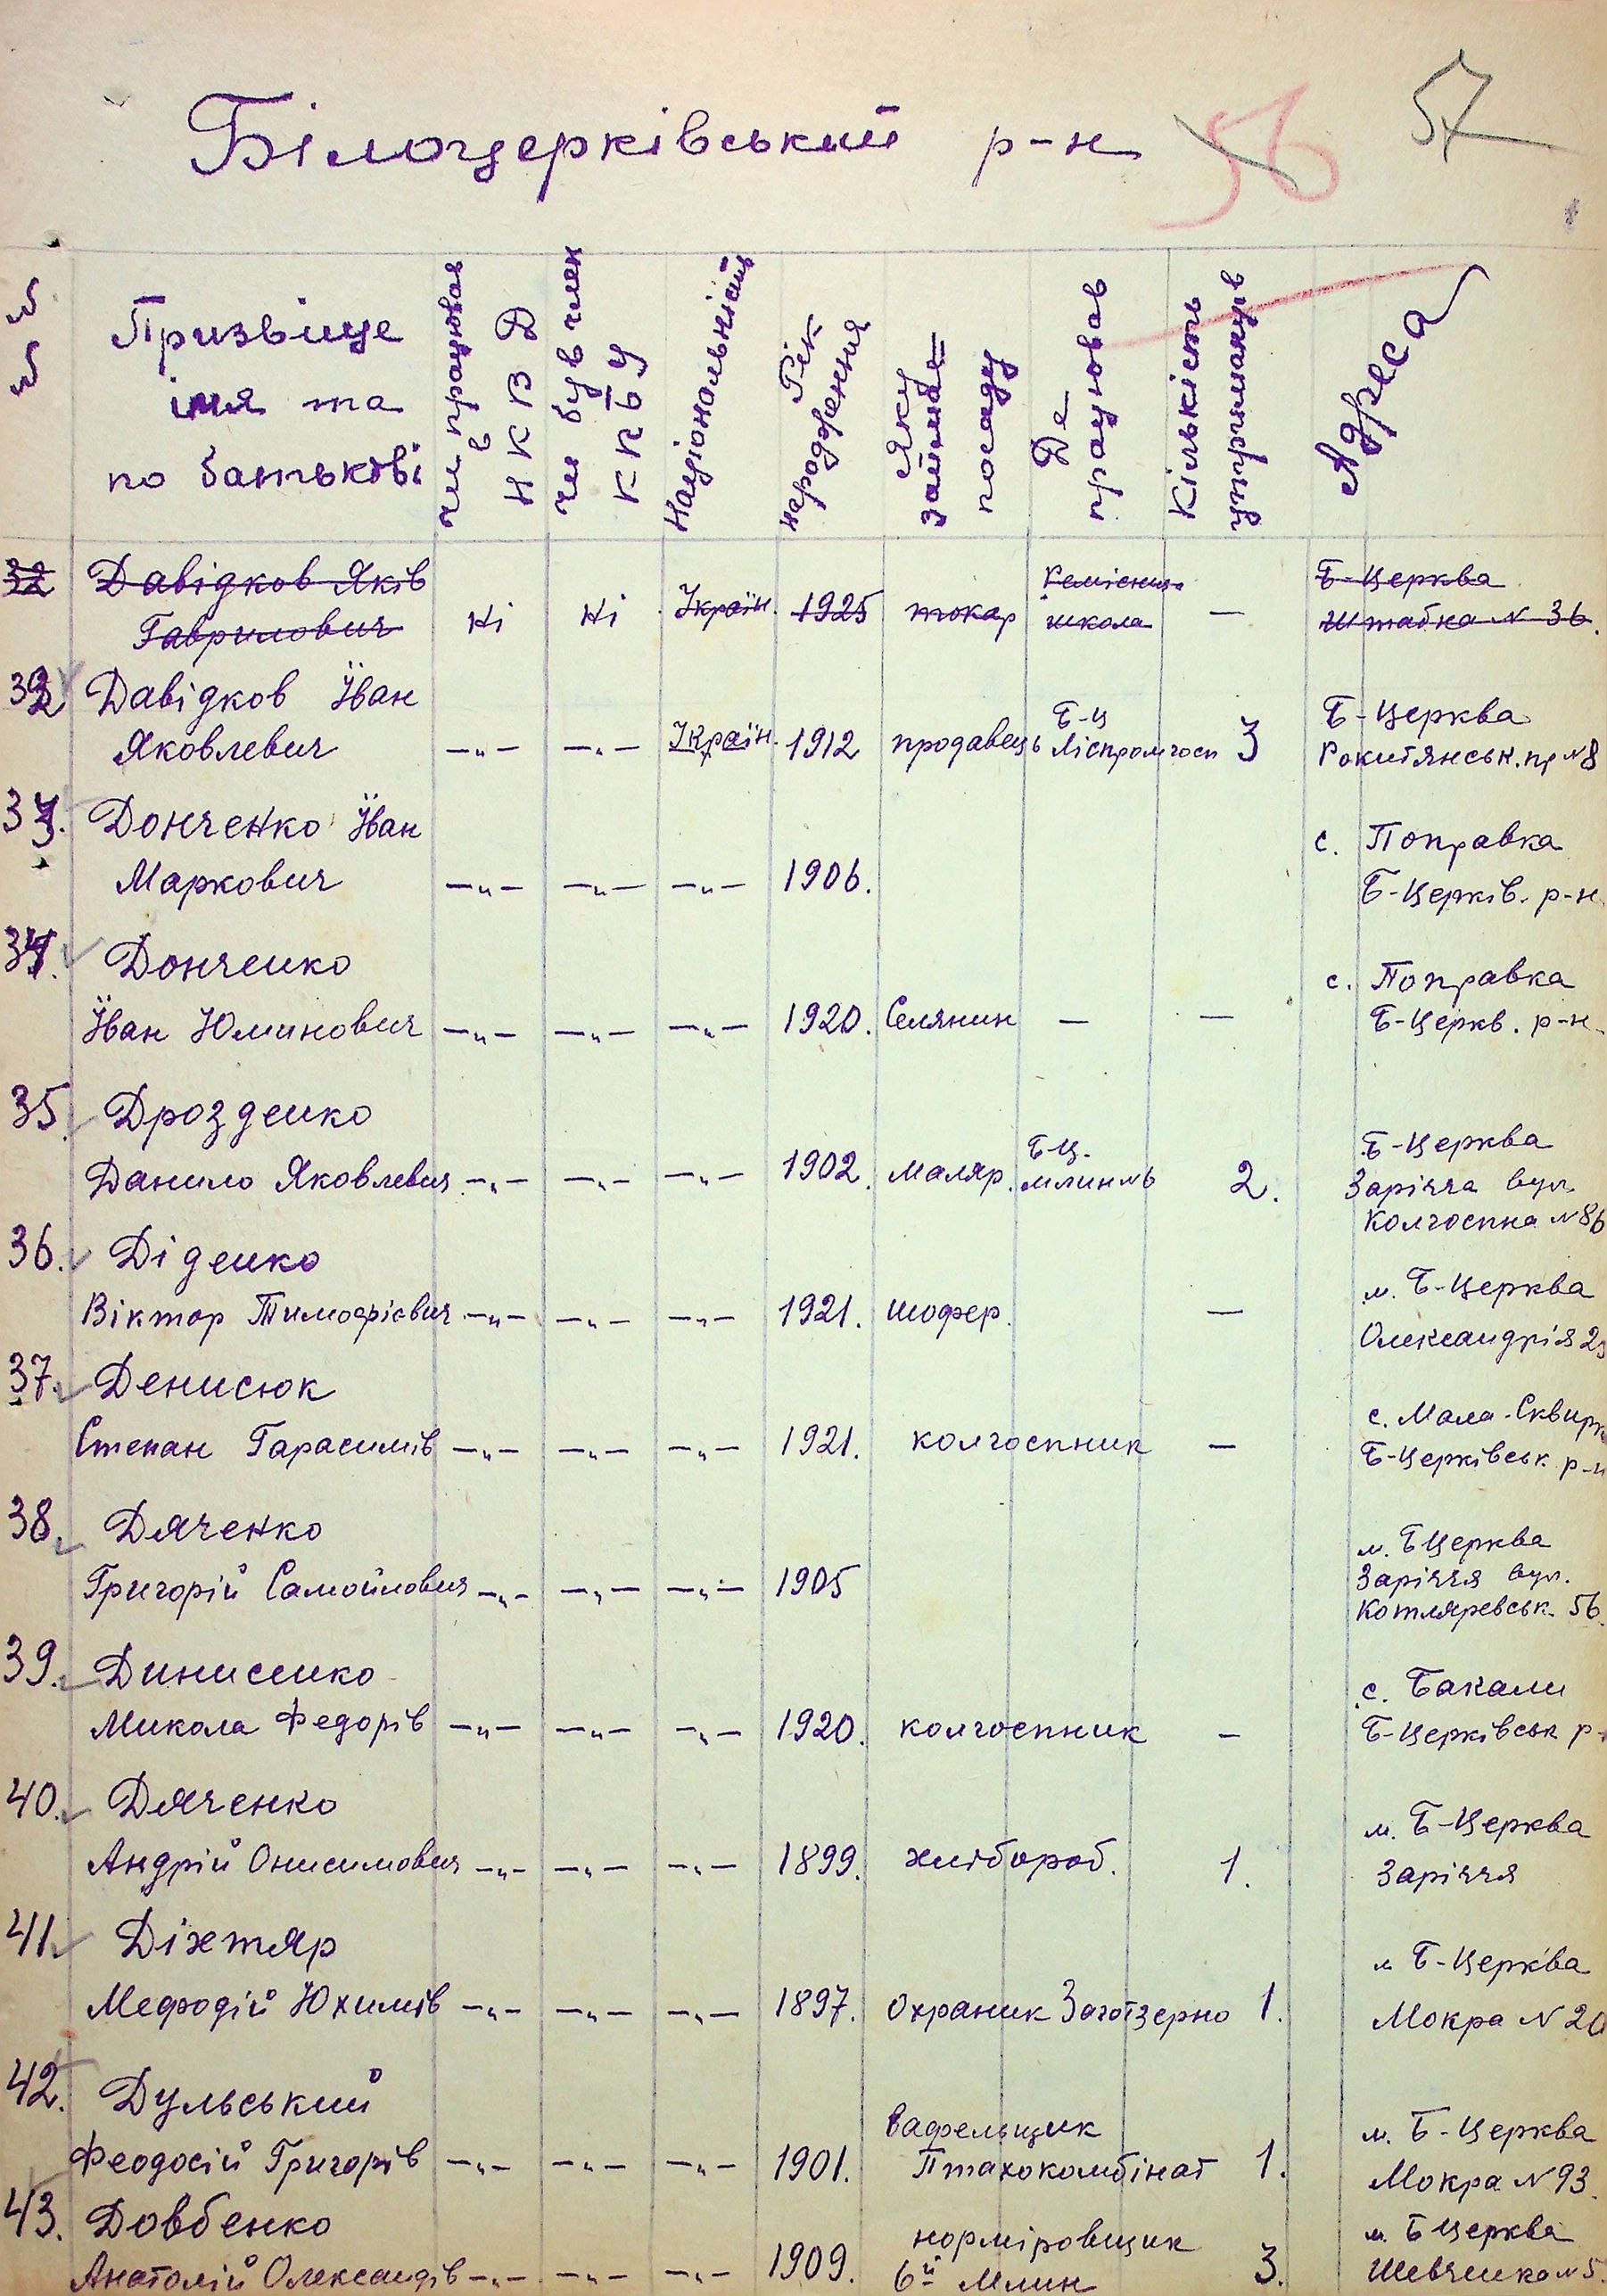 Білоцерківський р-н 56 57
№ №
Призвіще
імя та
по батькові
чи працював
в
Н К В Д
чи був член
К П б У
Національність
Рік
народження
яку
займав
посаду
Де
працював
Кількість
утриманців
Адреса
32 Давідков Яків
Гаврилович ні ні Україн. 1925 токар школа — Б-Церква
Штабна № 36.
32 Давідков Їван
Яковлевич —„— —„— Україн. 1912 продавець Б-Ц Ліспромгосп 3 Б-Церква
Рокитянськ. пр №8
33. Донченко Їван
Маркович —„— —„— —„— 1906. с. Поправка
Б-Церків. р-н.
34. Донченко
Їван Юминович —„— —„— —„— 1920. Селянин — — с. Поправка
Б-Церкв. р-н.
35. Дрозденко
Данило Яковлевич —„— —„— —„— 1902. маляр. Б-Ц. 2. Б-Церква
Заріччя вул.
Колгоспна №86
36. Діденко
Віктор Тимофієвич —„— —„— —„— 1921. шофер. — м. Б-Церква
Олександрія
37. Денисюк
Степан Гарасимів —„— —„— —„— 1921. колгоспник — с. Мала-Сквирк
Б-Церківськ р-н
38. Дяченко
Григорій Самойлович —„— —„— —„— 1905 м. БЦерква
Заріччя вул.
Котляревськ. 56.
39. Динисенко
Микола Федорів —„— —„— —„— 1920. колгоспник — с. Бакали
Б-Церківськ р-
40. Дяченко
Андрій Онисимович —„— —„— —„— 1899. хлібороб. 1. м. Б-Церква
Заріччя
41. Діхтяр
Мефодій Юхимів —„— —„— —„— 1897. Охраник Заготзерно 1. м Б-Церква
Мокра № 20
42. Дульський
Феодосій Григорів —„— —„— —„— 1901. вафельщик
Птахокомбінат 1. м. Б-Церква
Мокра №93.
43. Довбенко
Анатолій Олександів —„— —„— —„— 1909. норміровщик
6й Млин 3. м. БЦерква
Шевченка №5.